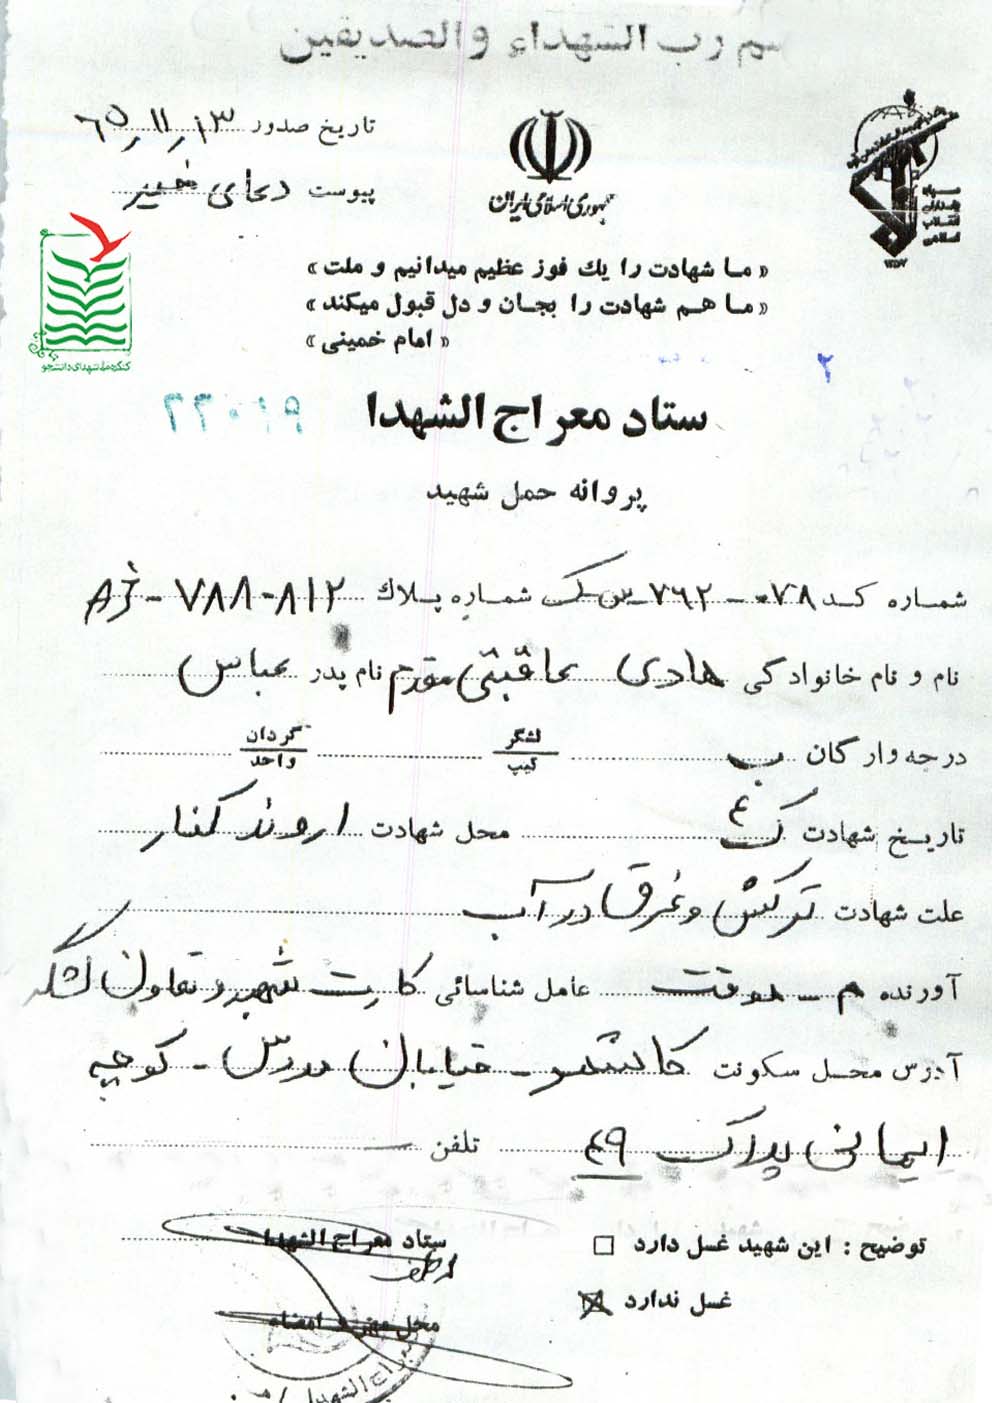 بسم رب الشهداء والصديقين
تاریخ صدور ۶۵/۱۱/۱۳
پیوست دعای خیر
جمهوری اسلامی ایران
سپاه پاسداران انقلاب اسلامی
۱۳۵۷
کنگره ملی شهدای دانشجو
« ما شهادت را یك فوز عظیم میدانیم و ملت »
« ما هم شهادت را بجان و دل قبول میکند »
« امام خمینی »
۲
ستاد معراج الشهدا ۲۳۰۱۹
پروانه حمل شهید
شماره کد ۰۷۸-۷۶۲ س ک شماره پلاك ۸۱۲-۷۸۸
نام و نام خانوادگی هادی عاقبتی مقدم نام پدر عباس
درجه و ارگان ب لشگر تیپ گردان واحد
تاریخ شهادت ک ۴ محل شهادت اروند کنار
علت شهادت ترکش و غرق در آب
آورنده عامل شناسائی کارت شهید و تعاون لشکر
آدرس محل سکونت کاشمر - خیابان مدرس - کوچه
ایمانی پلاک ۴۹ تلفن
توضیح : این شهید غسل دارد ☐ ستاد معراج الشهدا
غسل ندارد ☒ محل مهر و امضاء
معراج الشهداء